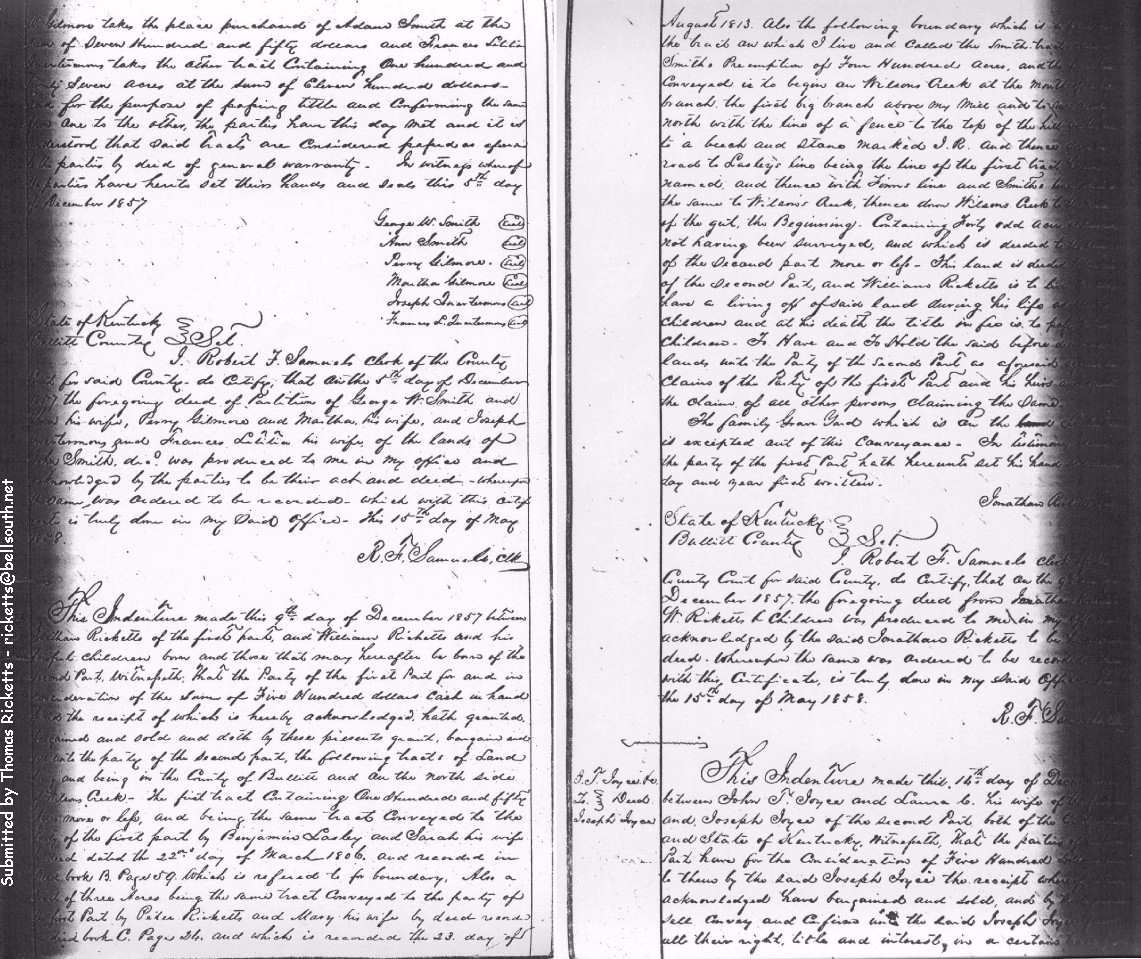 Gilmore takes the place purchased of Adam Smith at the
of Seven Hundred and fifty dollars and Frances Letitia
takes the other tract Containing One hundred and
Seven acres at the sum of Eleven hundred dollars-
for the purpose of passing tittle and Confirming the same
one to the other, the parties have this day met and it is
that said tracts are Considered passed as
parties by deed of general warranty - In witness whereof
parties have hereto set theirs hands and seals this 5th day
December 1857
George W. Smith seal
Ann Smith seal
Perry Gilmore. seal
Martha Gilmore seal
Joseph seal
Frances L. seal
State of Kentucky
Bullitt County Sct.
I, Robert F. Samuels Clerk of the County
for said County - do Certify, that on the 5th day of December
the foregoing deed of Partition of George W. Smith and
his wife, Perry Gilmore and Martha, his wife, and Joseph
and Frances Letitia his wife, of the lands of
Smith, decd. was produced to me in my office and
acknowledged by the parties to be their act and deed - whereupon
same was ordered to be recorded which with this
is truly done in my said office - This 15th day of May
1858.
R. F. Samuels, Clk
This Indenture made this 9th day of December 1857 between
Ricketts of the first part and William Ricketts and his
children born and those that may hereafter be born of the
Part, Witnesseth; That the Party of the first Part for and in
consideration of the Sum of Five Hundred dollars Cash in hand
the receipt of which is hereby acknowledged, hath granted,
and sold and doth by these presents grant, bargain and
unto the party of the second part, the following tracts of Land
and being in the County of Bullitt and on the North side
Creek - The first tract Containing One Hundred and fifty
more or less, and being the same tract Conveyed to the
of the first part by Benjamin Lasley and Sarah his wife
dated the 22nd day of March 1806. and recorded in
book B. Page 59. which is refered to for boundary, Also a
of three Acres being the same tract Conveyed to the party of
Part by Peter Ricketts and Mary his wife by deed
book C. Page 26. and which is recorded the 23. day of
August 1813. Also the following boundary which is
the tract on which I live and Called the Smith tract
Smiths Preemption of Four Hundred Acres, and the
Conveyed is to begin on Wilsons Creek at the mouth
branch, the first big branch above my Mill and to
north with the line of a fence to the top of the hill
to a beach and stone marked J. R. And thence
road to Lasley's line being the line of the first tract
named, and thence with line and Smiths
the same to Wilson's Creek, thence down Wilsons Creek
of the gut, the Beginning. Containing Forty odd acres
not having been surveyed, and which is deeded
of the Second part more or less - This land is deeded
of the Second Part, and William Ricketts is to
have a living off of said land during his life
Children and at his death the title in fee is to
Children - To Have and To Hold the said before
lands unto the Party of the Second Part as aforesaid
Claims of the Party of the first Part and his heirs
the claim of all other persons claiming the Same-
The family Grave Yard which is on the land
is excepted out of this Conveyance - In testimony
the party of the first Part hath hereunto set his hand
day and year first written -
Jonathan
State of Kentucky
Bullitt County Sct.
I, Robert F. Samuels clerk
County Court for said County, do Certify, that on the
December 1857, the foregoing deed from
W. Ricketts & Children was produced to me in my
acknowledged by the said Jonathan Ricketts to be
deed. Whereupon the same was ordered to be
with this, Certificate, is truly done in my Said Office
the 15th day of May 1858.
R. F.
J. T. Joyce &c
To Deed
Joseph Joyce
This Indenture made this, 18th day of
between John T. Joyce and Laura C. his wife of
and, Joseph Joyce of the second Part, both of the
and State of Kentucky, Witnesseth, That the parties
Part have for the Consideration of Five Hundred
to them by the said Joseph Joyce the receipt
acknowledged have bargained and sold, and by
sell Convey and Confirm unto the said Joseph
all their right, title and interest, in a certain
Submitted by Thomas Ricketts - ricketts@bellsouth.net